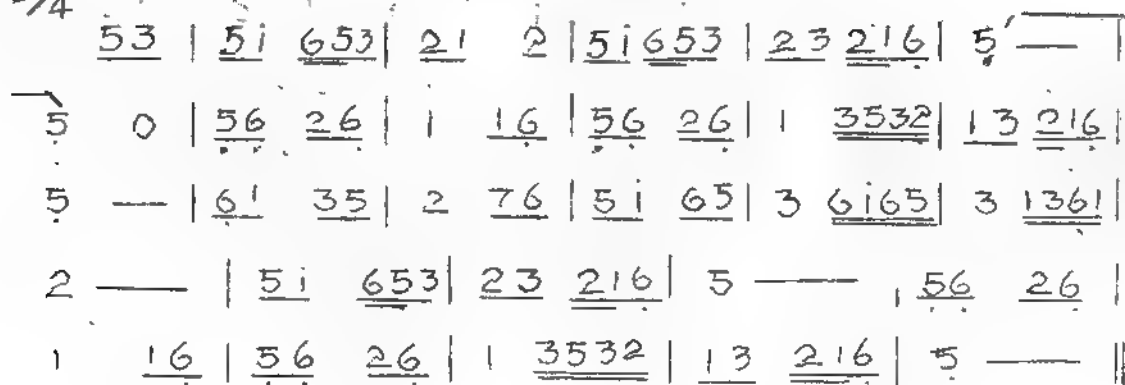 2/4
53 | 5i 653 | 21 2 | 5i 653 | 23 216 | 5 — |
5 0 | 56 26 | 1 16 | 56 26 | 1 3532 | 13 216 |
5 — | 61 35 | 2 76 | 5i 65 | 3 6i65 | 3 1361 |
2 — | 5i 653 | 23 216 | 5 — | 56 26 |
1 16 | 56 26 | 1 3532 | 13 216 | 5 — ||